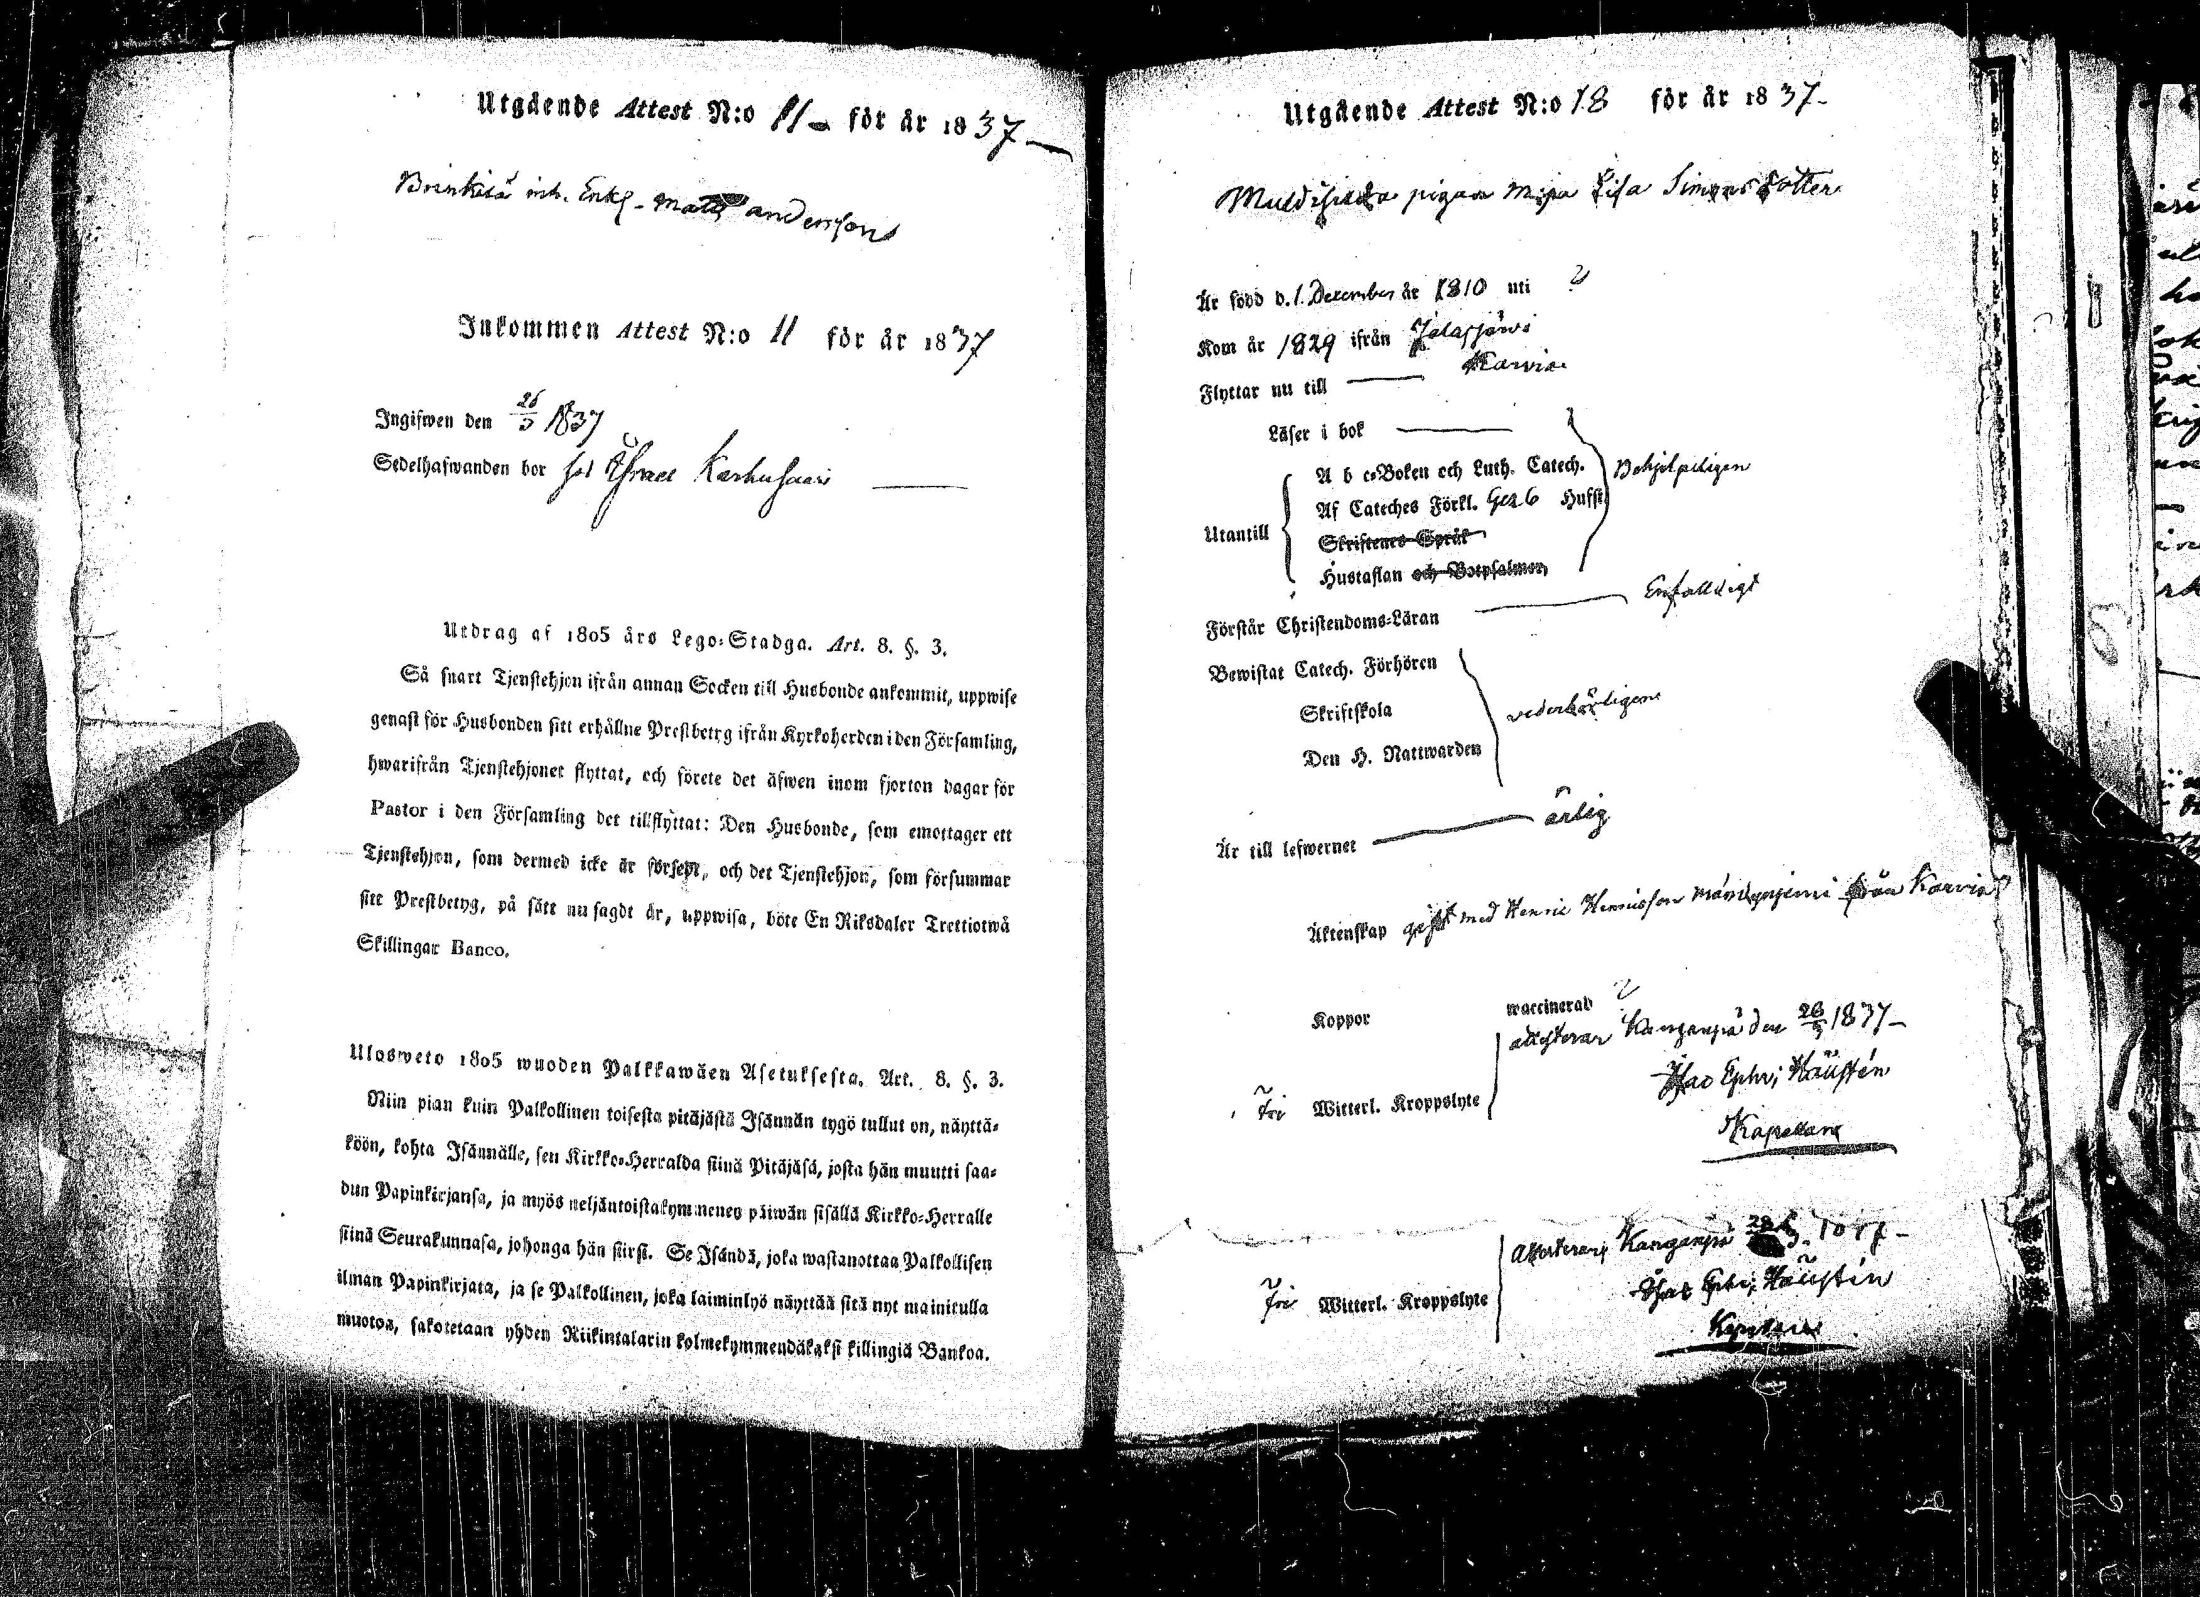 Utgående Attest N:o 11 för år 1837
inh. Enkl. Matts Andersson
Inkommen Attest N:o 11 för år 1837
Ingifwen den 26/3 1837
Sedelhafwanden bor Karhusaari
Utdrag af 1805 års Lego-Stadga. Art. 8. §. 3.
Så snart Tjenstehjon ifrån annan Socken till Husbonde ankommit, uppwise
genast för Husbonden sitt erhållne Prestbetyg ifrån Kyrkoherden i den Församling,
hwarifrån Tjenstehjonet flyttat, och förete det äfwen inom fjorton dagar för
Pastor i den Församling det tillflyttat: Den Husbonde, som emottager ett
Tjenstehjon, som dermed icke är försedt, och det Tjenstehjon, som försummar
sitt Prestbetyg, på sätt nu sagdt är, uppwisa, böte En Riksdaler Trettiotwå
Skillingar Banco.
Ulosweto 1805 wuoden Palkkawäen Asetuksesta. Art. 8. §. 3.
Niin pian kuin Palkollinen toisesta pitäjästä Isännän tygö tullut on, näyttä-
köön, kohta Isännälle, sen Kirkko-Herralda siinä Pitäjäsä, josta hän muutti saa-
dun Papinkirjansa, ja myös neljäntoistakymmenen päiwän sisällä Kirkko-Herralle
siinä Seurakunnasa, johonga hän siirsi. Se Isändä, joka wastanottaa Palkollisen
ilman Papinkirjata, ja se Palkollinen, joka laiminlyö näyttää sitä nyt mainitulla
muotoa, sakotetaan yhden Riikintalarin kolmekymmendäkaksi killingiä Bankoa.
Utgående Attest N:o 18 för år 1837
pigan Maja Lisa Simonsdotter
Är född d. 1 December år 1810 uti ?
Kom år 1829 ifrån Jalasjärvi
Flyttar nu till Karvia
Läser i bok
A b c-Boken och Luth. Catech. Behjelpeligen
Af Cateches Förkl. 6 Hufst.
Utantill
Skriftenes Språk
Hustaflan och Botpsalmer
Förstår Christendoms-Läran Enfalldigt
Bewistat Catech. Förhören
Skriftskola vederbörligen
Den H. Nattwarden
Är till lefwernet ärlig
Äktenskap gift med Henric Henricsson från Karvia
Koppor waccinerad ?
attesterar Kangasjä den 26/3 1837
Fri Witterl. Kroppslyte
Isac Ephr; Häusten
Kapellan
Attesterar
Fri Witterl. Kroppslyte
Isac Ephr; Häusten